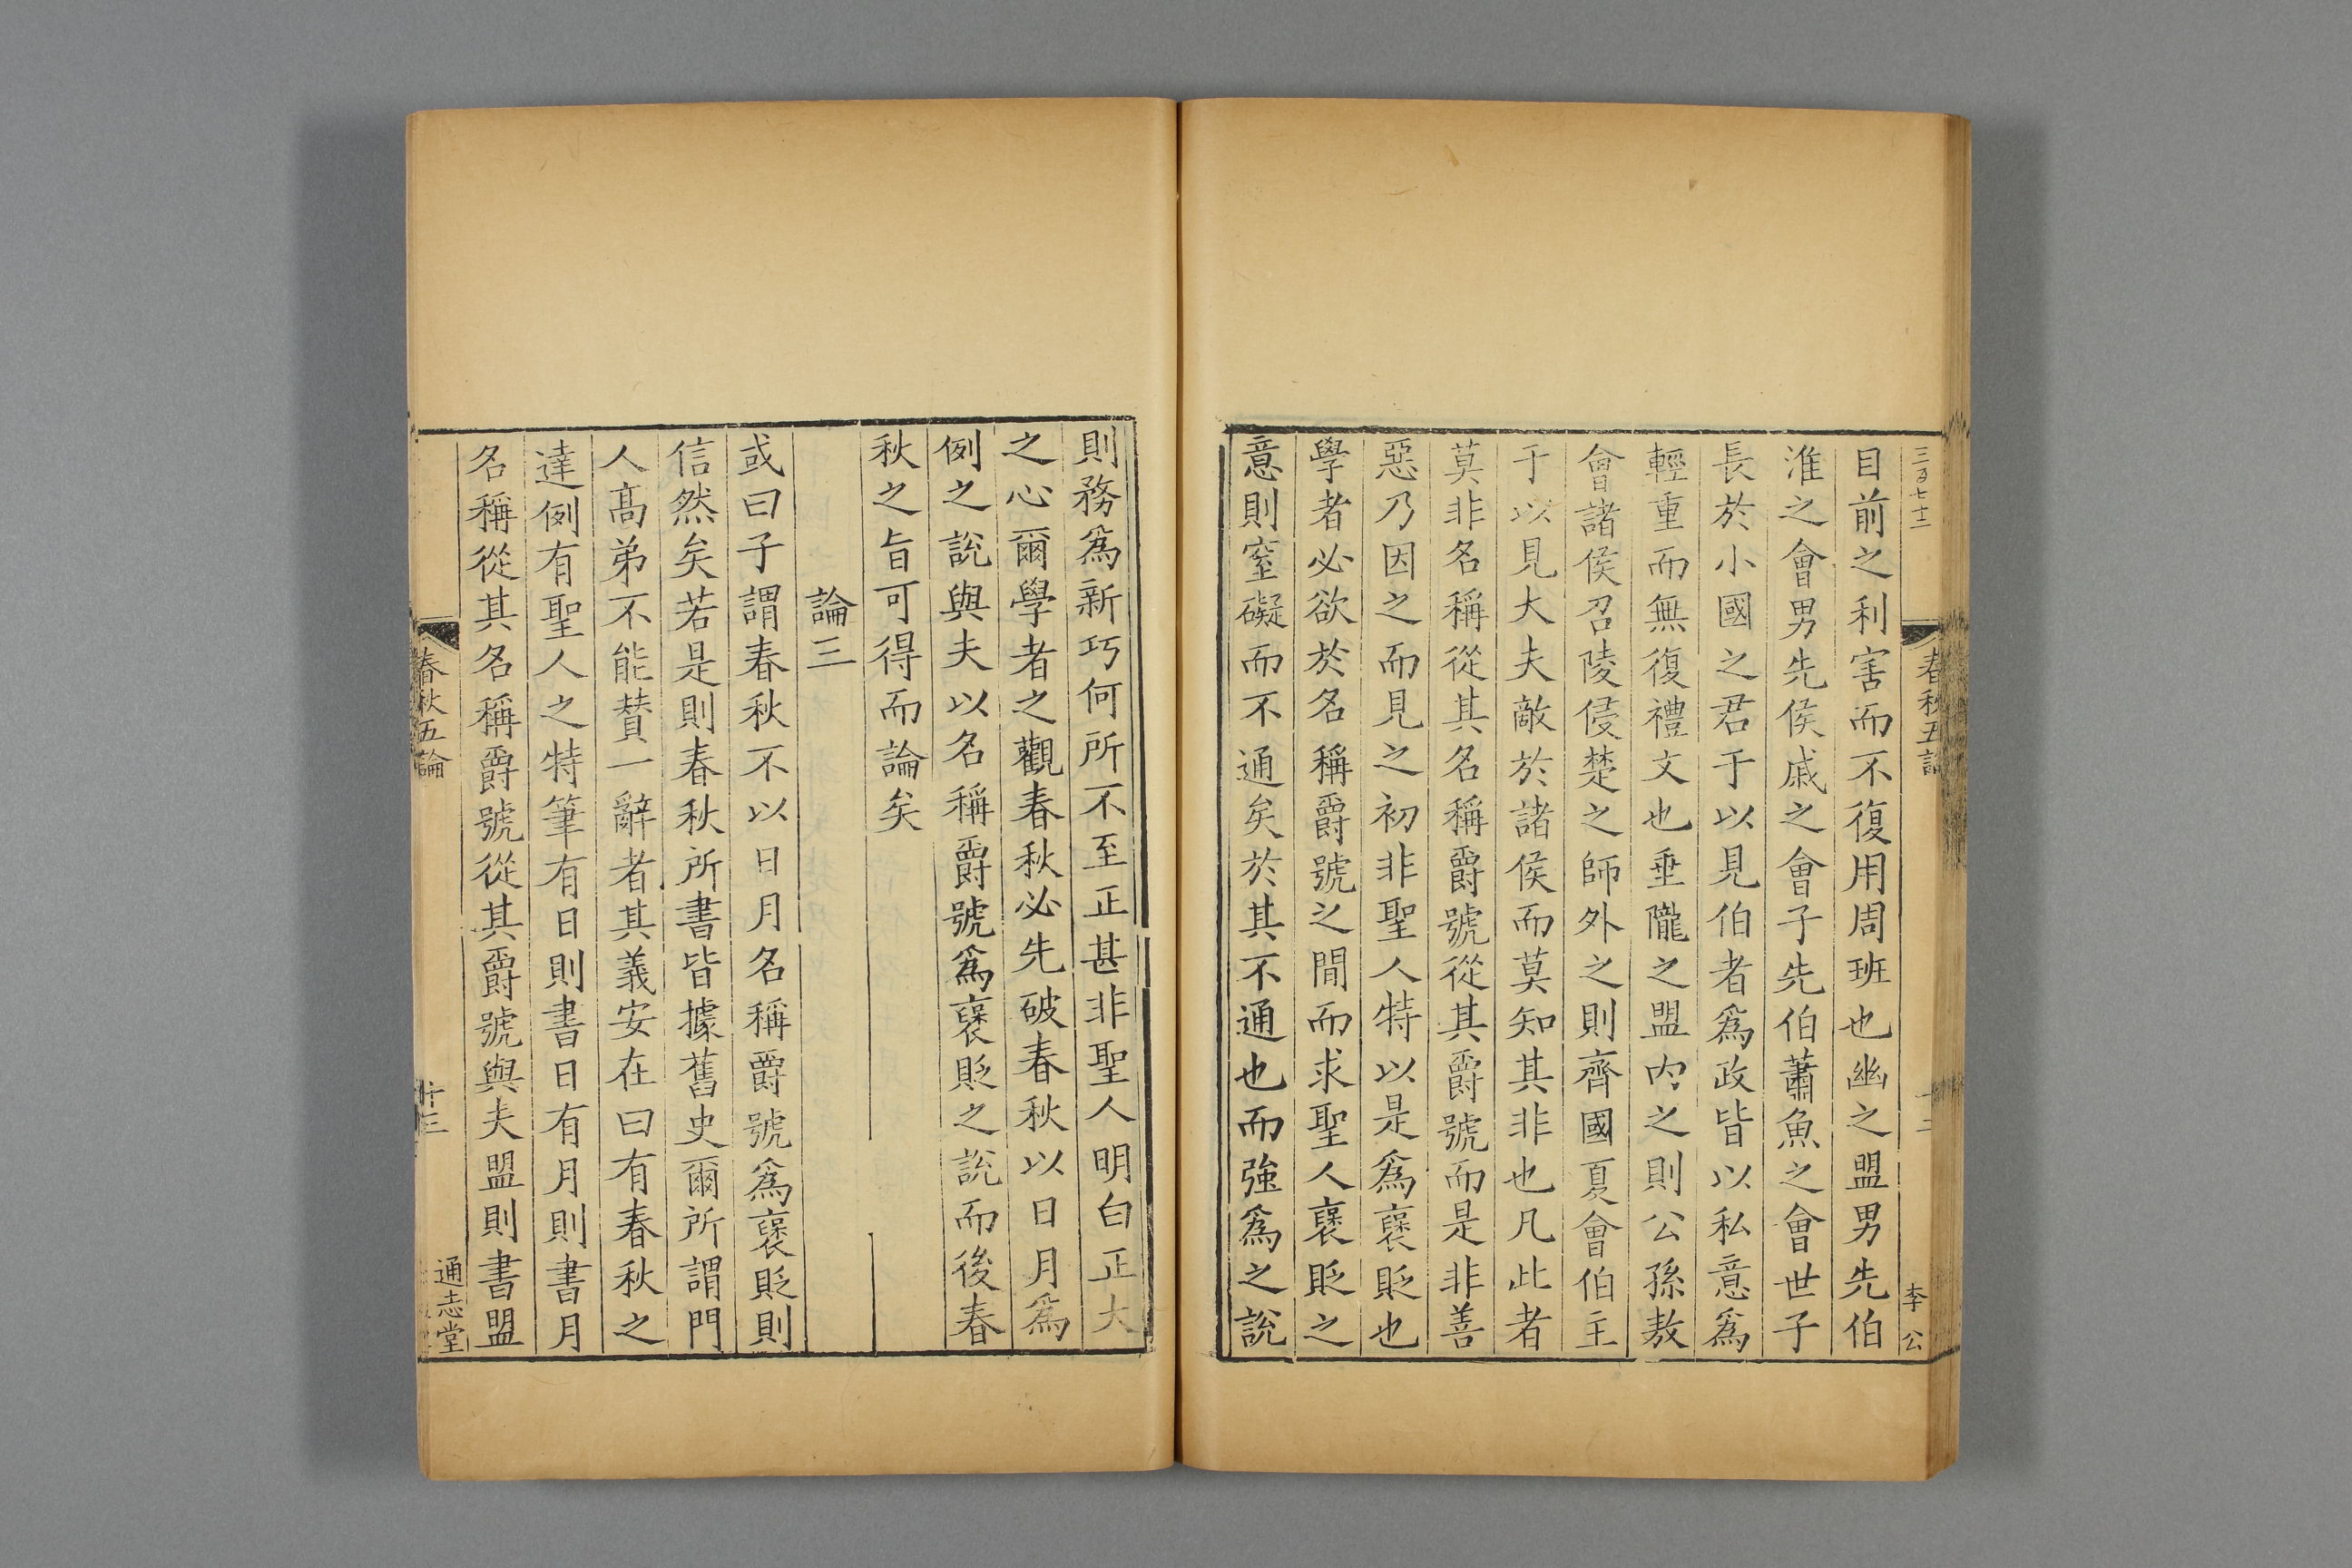 三百七十二
春秋五論
十二
李公
目前之利害而不復用周班也幽之盟男先伯
淮之會男先侯戚之會子先伯蕭魚之會世子
長於小國之君于以見伯者爲政皆以私意爲
輕重而無復禮文也垂隴之盟内之則公孫敖
會諸侯召陵侵楚之師外之則齊國夏會伯主
于以見大夫敵於諸侯而莫知其非也凡此者
莫非名稱從其名稱爵號從其爵號而是非善
惡乃因之而見之初非聖人特以是爲襃貶也
學者必欲於名稱爵號之間而求聖人襃貶之
意則窒礙而不通矣於其不通也而強爲之說
則務爲新巧何所不至正甚非聖人明白正大
之心爾學者之觀春秋必先破春秋以日月爲
例之說與夫以名稱爵號爲襃貶之說而後春
秋之旨可得而論矣
論三
或曰子謂春秋不以日月名稱爵號爲襃貶則
信然矣若是則春秋所書皆據舊史爾所謂門
人髙弟不能賛一辭者其義安在曰有春秋之
達例有聖人之特筆有日則書日有月則書月
名稱從其名稱爵號從其爵號與夫盟則書盟
春秋五論
十三
通志堂